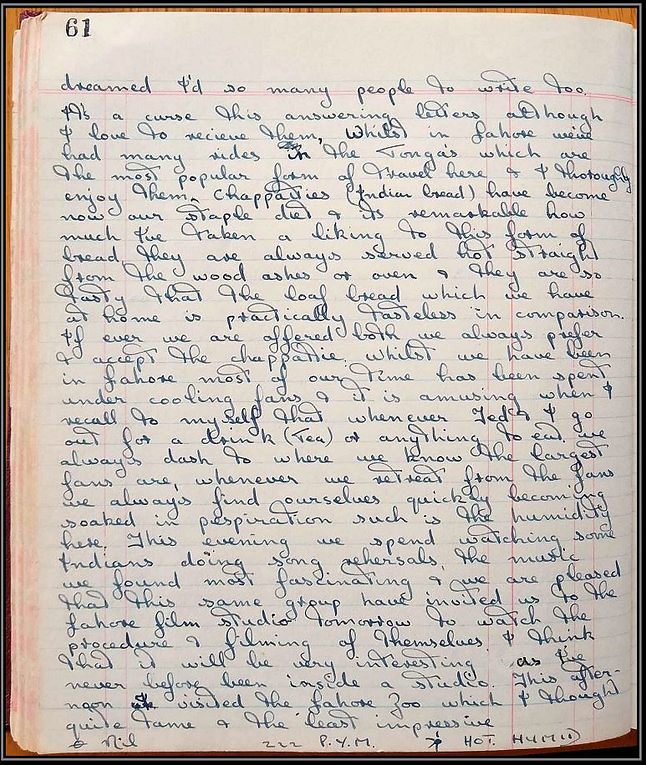 61
dreamed I'd so many people to write too.
It's a curse this answering letters although
I love to recieve them, whilst in Lahore weve
had many rides in the Tonga's which are
the most popular form of travel here & I thoroughly
enjoy them. Chappatties (Indian bread) have become
now our staple diet & its remarkable how
much I've taken a liking to this form of
bread, they are always served hot straight
from the wood ashes or oven & they are so
tasty that the loaf bread which we have
at home is practically tasteless in comparison.
If ever we are offered both we always prefer
& accept the chappattie. whilst we have been
in Lahore most of our time has been spent
under cooling fans & it is amusing when I
recall to myself that whenever Ted & I go
out for a drink (Tea) or anything to eat we
always dash to where we know the largest
fans are, whenever we retreat from the fans
we always find ourselves quickly becoming
soaked in pespiration such is the humidity
here. This evening we spend watching some
Indians doing song rehersals, the music
we found most fascinating & we are pleased
that this same group have invited us to the
Lahore film studio tomorrow to watch the
procedure & filming of themselves. I think
that it will be very interesting as I've
never before been inside a studio. This after-
noon visited the Lahore Zoo which I though
quite tame & the least impressive
Nil 222 P.Y.M. HOT. HUMID